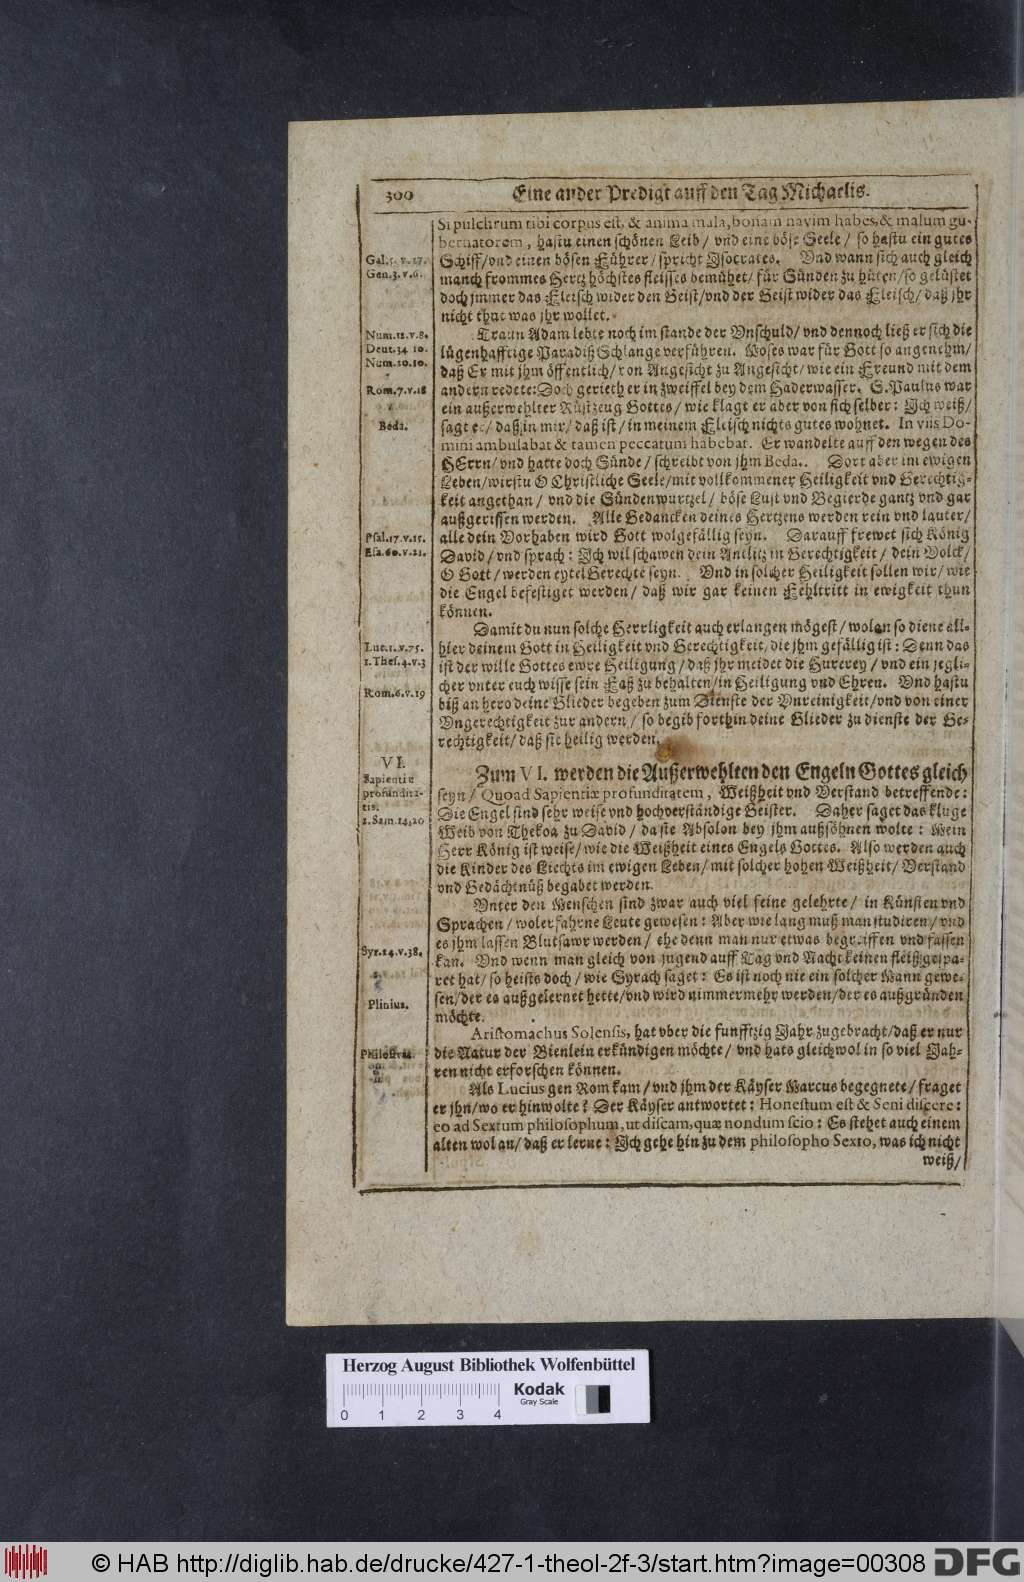 300
Eine ander Predigt auff den Tag Michaelis.
Si pulchrum tibi corpus est, & anima mala, bonam navim habes, & malum gu-
bernatorem, hastu einen schönen Leib / vnd eine böse Seele / so hastu ein gutes
Gal. 5. v. 17.
Schiff / vnd einen bösen Führer / spricht Isocrates. Vnd wann sich auch gleich
Gen. 3. v. 6.
manch frommes Hertz höchstes fleisses bemühet / für Sünden zu hüten / so gelüstet
doch jmmer das Fleisch wider den Geist / vnd der Geist wider das Fleisch / daß jhr
nicht thut was jhr wollet.
Num. 12. v. 8.
Traun Adam lebte noch im stande der Vnschuld / vnd dennoch ließ er sich die
Deut. 34 10.
lügenhafftige Paradiß Schlange verführen. Moses war für Gott so angenehm /
Num. 20. 10.
daß Er mit jhm öffentlich / von Angesicht zu Angesicht / wie ein Freund mit dem
Rom. 7. v. 18
andern redete: Doch gerieth er in zweiffel bey dem Haderwasser. S. Paulus war
ein außerwehlter Rüstzeug Gottes / wie klagt er aber von sich selber: Ich weiß /
Beda.
sagt er / daß in mir / daß ist / in meinem Fleisch nichts gutes wohnet. In viis Do-
mini ambulabat & tamen peccatum habebat. Er wandelte auff den wegen des
HErrn / vnd hatte doch Sünde / schreibt von jhm Beda. Dort aber im ewigen
Leben / wirstu O Christliche Seele / mit vollkommener Heiligkeit vnd Gerechtig-
keit angethan / vnd die Sündenwurtzel / böse Lust vnd Begierde gantz vnd gar
außgerissen werden. Alle Gedancken deines Hertzens werden rein vnd lauter /
Psal. 17. v. 15.
alle dein Vorhaben wird Gott wolgefällig seyn. Darauff frewet sich König
Esa. 60. v. 21.
David / vnd sprach: Ich wil schawen dein Antlitz in Gerechtigkeit / dein Volck /
O Gott / werden eytel Gerechte seyn. Vnd in solcher Heiligkeit sollen wir / wie
die Engel befestiget werden / daß wir gar keinen Fehltritt in ewigkeit thun
können.
Damit du nun solche Herrligkeit auch erlangen mögest / wolan so diene all-
Luc. 1. v. 75.
hier deinem Gott in Heiligkeit vnd Gerechtigkeit, die jhm gefällig ist: Denn das
1. Thes. 4. v. 3
ist der wille Gottes ewre Heiligung / daß jhr meidet die Hurerey / vnd ein jegli-
cher vnter euch wisse sein Faß zu behalten / in Heiligung vnd Ehren. Vnd hastu
Rom. 6. v. 19
biß anhero deine Glieder begeben zum Dienste der Vnreinigkeit / vnd von einer
Vngerechtigkeit zur andern / so begib forthin deine Glieder zu dienste der Ge-
rechtigkeit / daß sie heilig werden.
VI.
Sapientiæ
profundita-
tis.
Zum VI. werden die Außerwehlten den Engeln Gottes gleich
seyn / Quoad Sapientiæ profunditatem, Weißheit vnd Verstand betreffende:
Die Engel sind sehr weise vnd hochverständige Geister. Daher saget das kluge
2. Sam. 14, 20
Weib von Thekoa zu David / da ste Absolon bey jhm außsöhnen wolte: Mein
Herr König ist weise / wie die Weißheit eines Engels Gottes. Also werden auch
die Kinder des Liechts im ewigen Leben / mit solcher hohen Weißheit / Verstand
vnd Gedächtnüß begabet werden.
Vnter den Menschen sind zwar auch viel feine gelehrte / in Künsten vnd
Sprachen / wolerfahrne Leute gewesen: Aber wie lang muß man studiren / vnd
es jhm lassen Blutsawr werden / ehe denn man nur etwas begreiffen vnd fassen
Syr. 24. v. 38.
kan. Vnd wenn man gleich von jugend auff Tag vnd Nacht keinen fleiß gespa-
ret hat / so heists doch / wie Syrach saget: Es ist noch nie ein solcher Mann gewe-
sen / der es außgelernet hette / vnd wird nimmermehr werden / der es außgründen
möchte.
Plinius.
Aristomachus Solensis, hat vber die funfftzig Jahr zugebracht / daß er nur
Philostrat.
die Natur der Bienlein erkündigen möchte / vnd hats gleichwol in so viel Jah-
ren nicht erforschen können.
Als Lucius gen Rom kam / vnd jhm der Käyser Marcus begegnete / fraget
er jhn / wo er hinwolte? Der Käyser antwortet: Honestum est & Seni discere:
eo ad Sextum philosophum, ut discam, quæ nondum scio: Es stehet auch einem
alten wol an / daß er lerne: Ich gehe hin zu dem philosopho Sexto, was ich nicht
weiß /
Herzog August Bibliothek Wolfenbüttel
Kodak
Gray Scale
0 1 2 3 4
© HAB http://diglib.hab.de/drucke/427-1-theol-2f-3/start.htm?image=00308
DFG